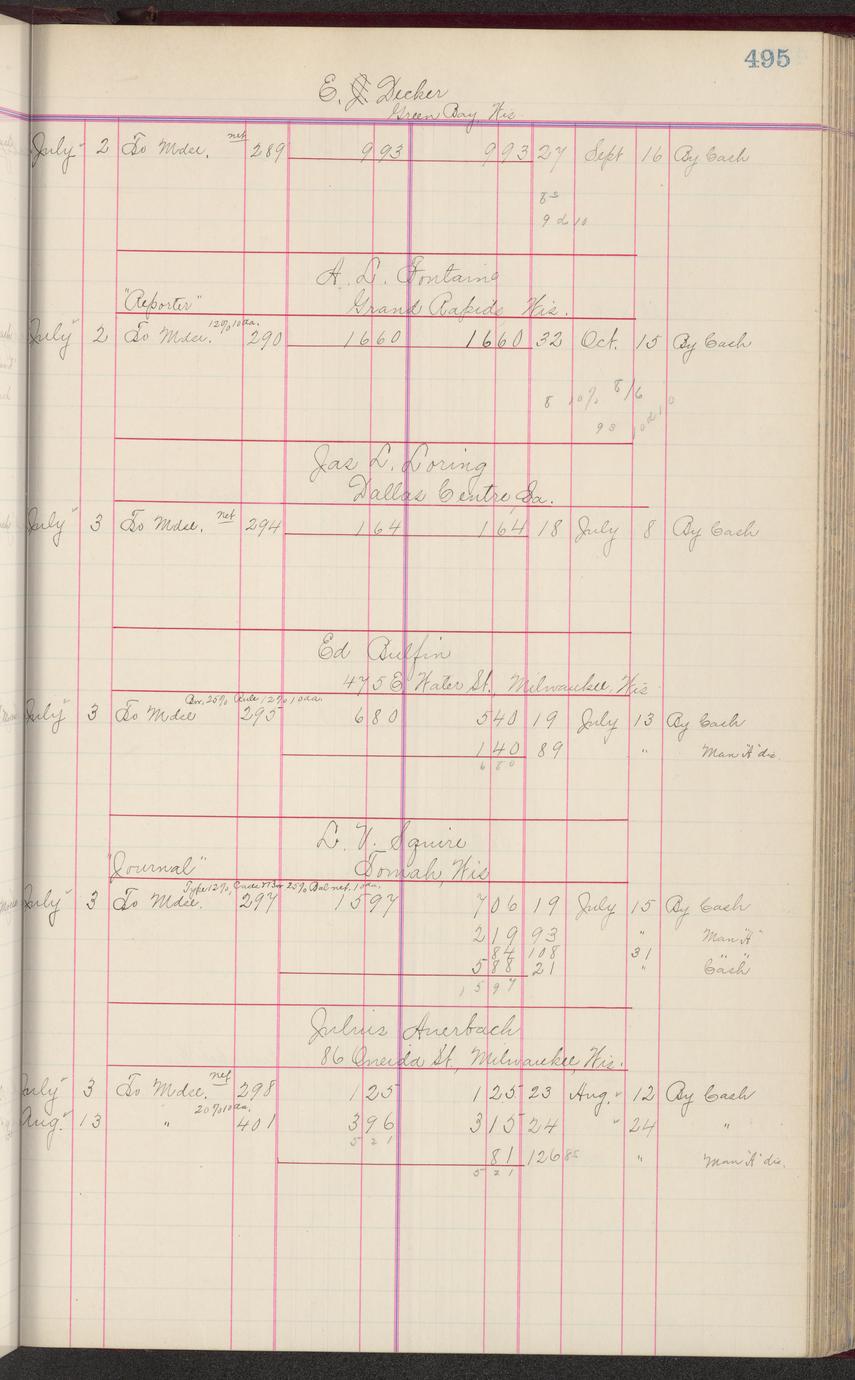 495
E. J Decker
Green Bay, Wis
July 2 To Mdse. net 289 993 993 27 Sept 16 By Cash
9 & 10
A. L. Fontaine
"Reporter" Grand Rapids, Wis.
July 2 To Mdse. 12% 10 da. 290 1660 1660 32 Oct. 15 By Cash
8 10% 8/6
98
Jas L. Loring
Dallas Centre, Ia.
July 3 To Mdse. net 294 164 164 18 July 8 By Cash
Ed Bulfin
475 E Water St., Milwaukee, Wis
25% Rule 12% 10 da.
July 3 To Mdse 295 680 540 19 July 13 By Cash
140 89 " Man "A" dis.
680
L. V. Squire
"Journal" Tomah, Wis
Type 12%, Cases 25% Bal net. 10 da.
July 3 To Mdse. 297 1597 706 19 July 15 By Cash
219 93 " Man "A"
84 108 31 " "
588 21 " Cash
1597
Julius Auerbach
86 Oneida St., Milwaukee Wis.
July 3 To Mdse. net 298 125 125 23 Aug. 12 By Cash
Aug. 13 " 20% 10 da. 401 396 315 24 " 24 "
521
81 126 " Man "A" dis.
521